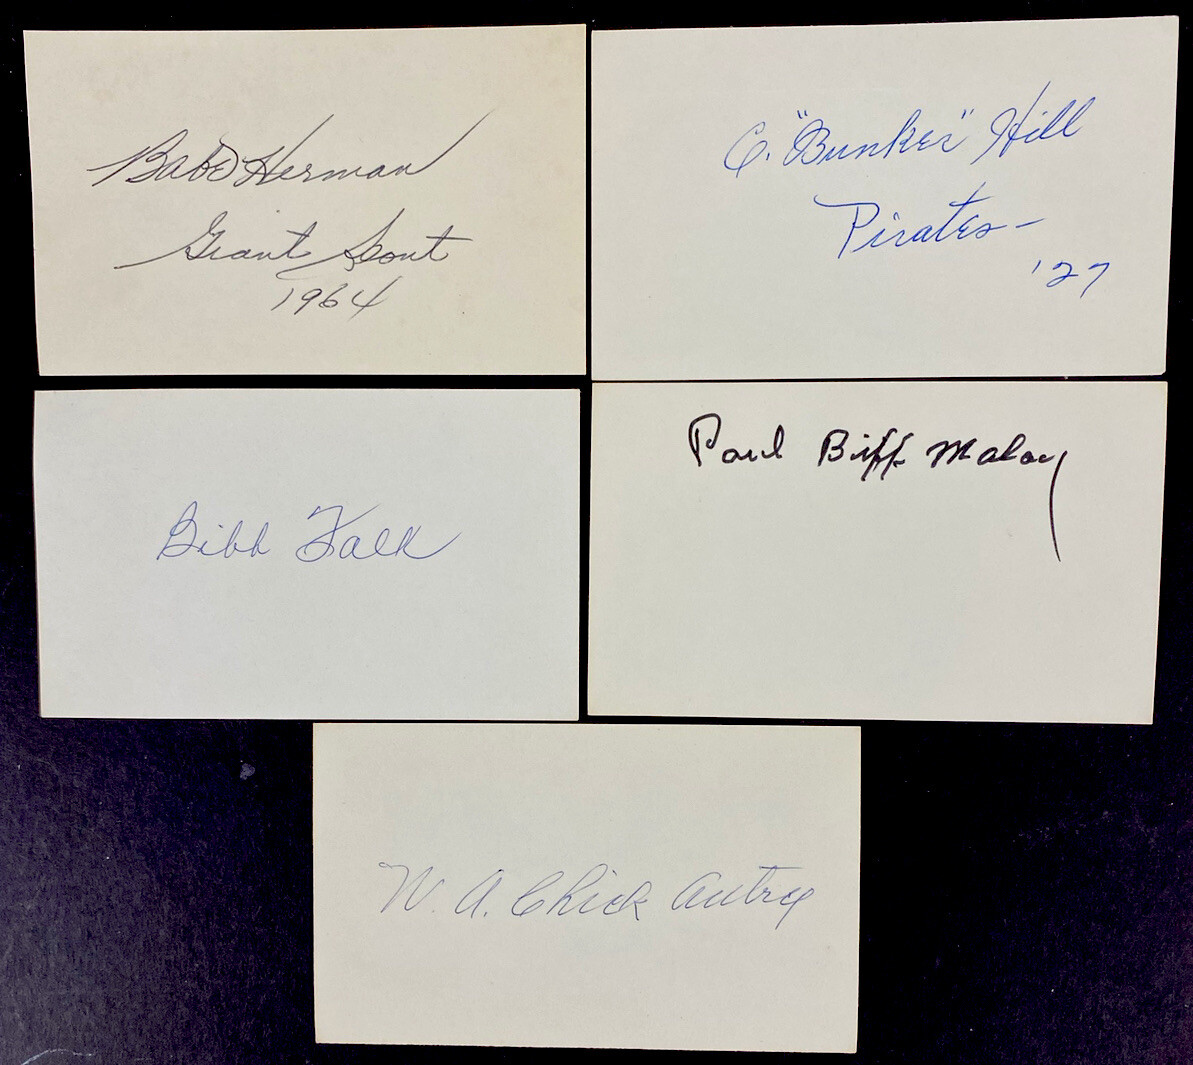 Babe Herman
Giant Scout
1964
C. "Bunker" Hill
Pirates -
'27
Bibb Falk
Paul Biff Maloy
W. A. Chick Autry